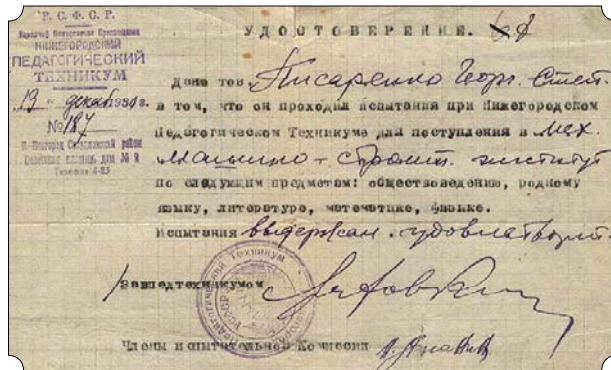 Р. С. Ф. С. Р.
НИЖЕГОРОДСКИЙ
ПЕДАГОГИЧЕСКИЙ
ТЕХНИКУМ
19 декаб 1930 г.
№ 187
Телефон 4-83
УДОСТОВЕРЕНИЕ.
Дано тов. Писаренко Георг. Степ.
в том, что он проходил испытания при Нижегородском
Педагогическом Техникуме для поступления в Мех.
Машино-строит. институт
По следующим предметам: обществоведению, родному
языку, литературе, математике, физике.
Испытания выдержал удовлетворит.
Завпедтехникумом
Члены испытательной Комиссии